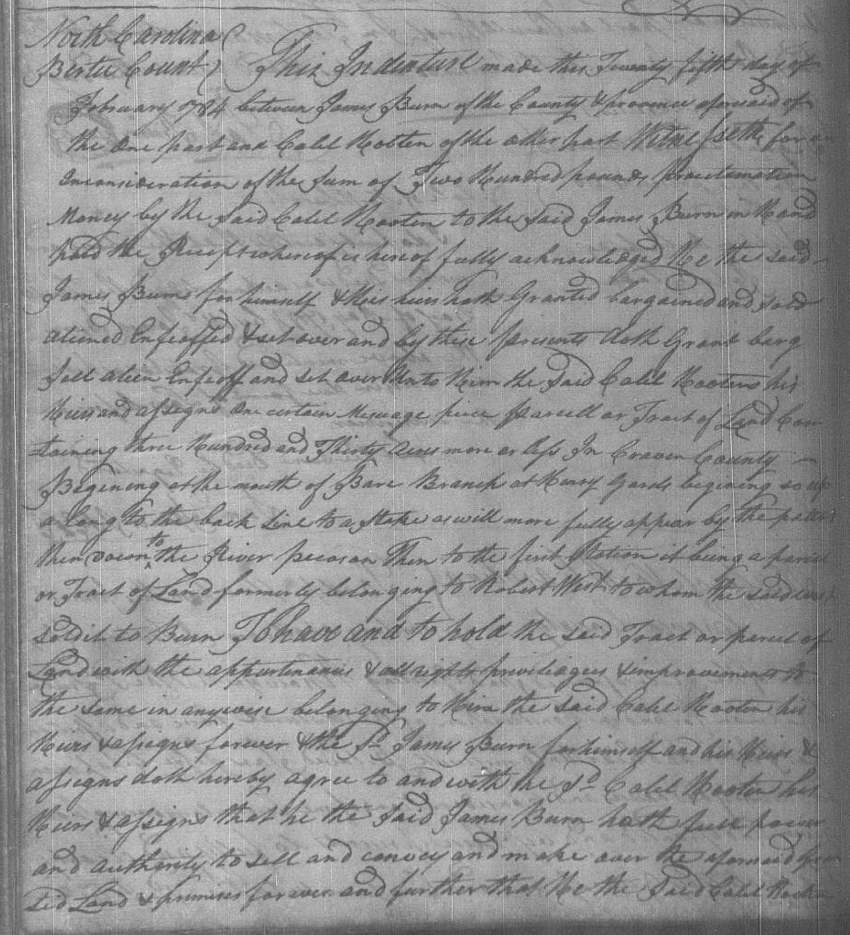 North Carolina
Bertie County This Indenture made this Twenty fifth day of
February 1784 between James Burn of the County & province aforesaid of
the One part and Calel Hooten of the other part Witnesseth for
inconsideration of the Sum of Two Hundred pounds proclamation
Money by the Said Calel Hooten to the Said James Burn in Hand
paid the Recept whereof is hereof fully acknowledged He the said
James Burns for himself & His hiers hath Granted bargained and sold
aliened Enfeoffed & set over and by these presents doth Grant barg
Sell alien Enfeoff and set over Unto Him the Said Calel Hooten his
Hiers and assigns One certain Mesuage piece parcell or Tract of Land Con
taining three Hundred and Thirty Acres more or less In Craven County
Begening at the mouth of Bare Branch at Henry Gards begining
a long to the back Line to a Stake as will more fully appear by the
then down to the River Then to the first Station it being a parcel
or Tract of Land formerly belonging to Robert West to whom the said
sold it to Burn To have and to hold the said Tract or parcel of
Land with the appurtenancies & all rights priviliages & improvements to
the same in anywise belonging to Him the said Calel Hooten his
Hiers & assigns forever & the Sd. James Burn for himself and his Hiers &
assigns doth hereby agree to and with the Sd. Calel Hooten his
Hiers & assigns that he the Said James Burn hath full power
and authority to sell and convey and make over the aforesaid Gran
ted Land & premises forever and further that He the Said Calel Hooten